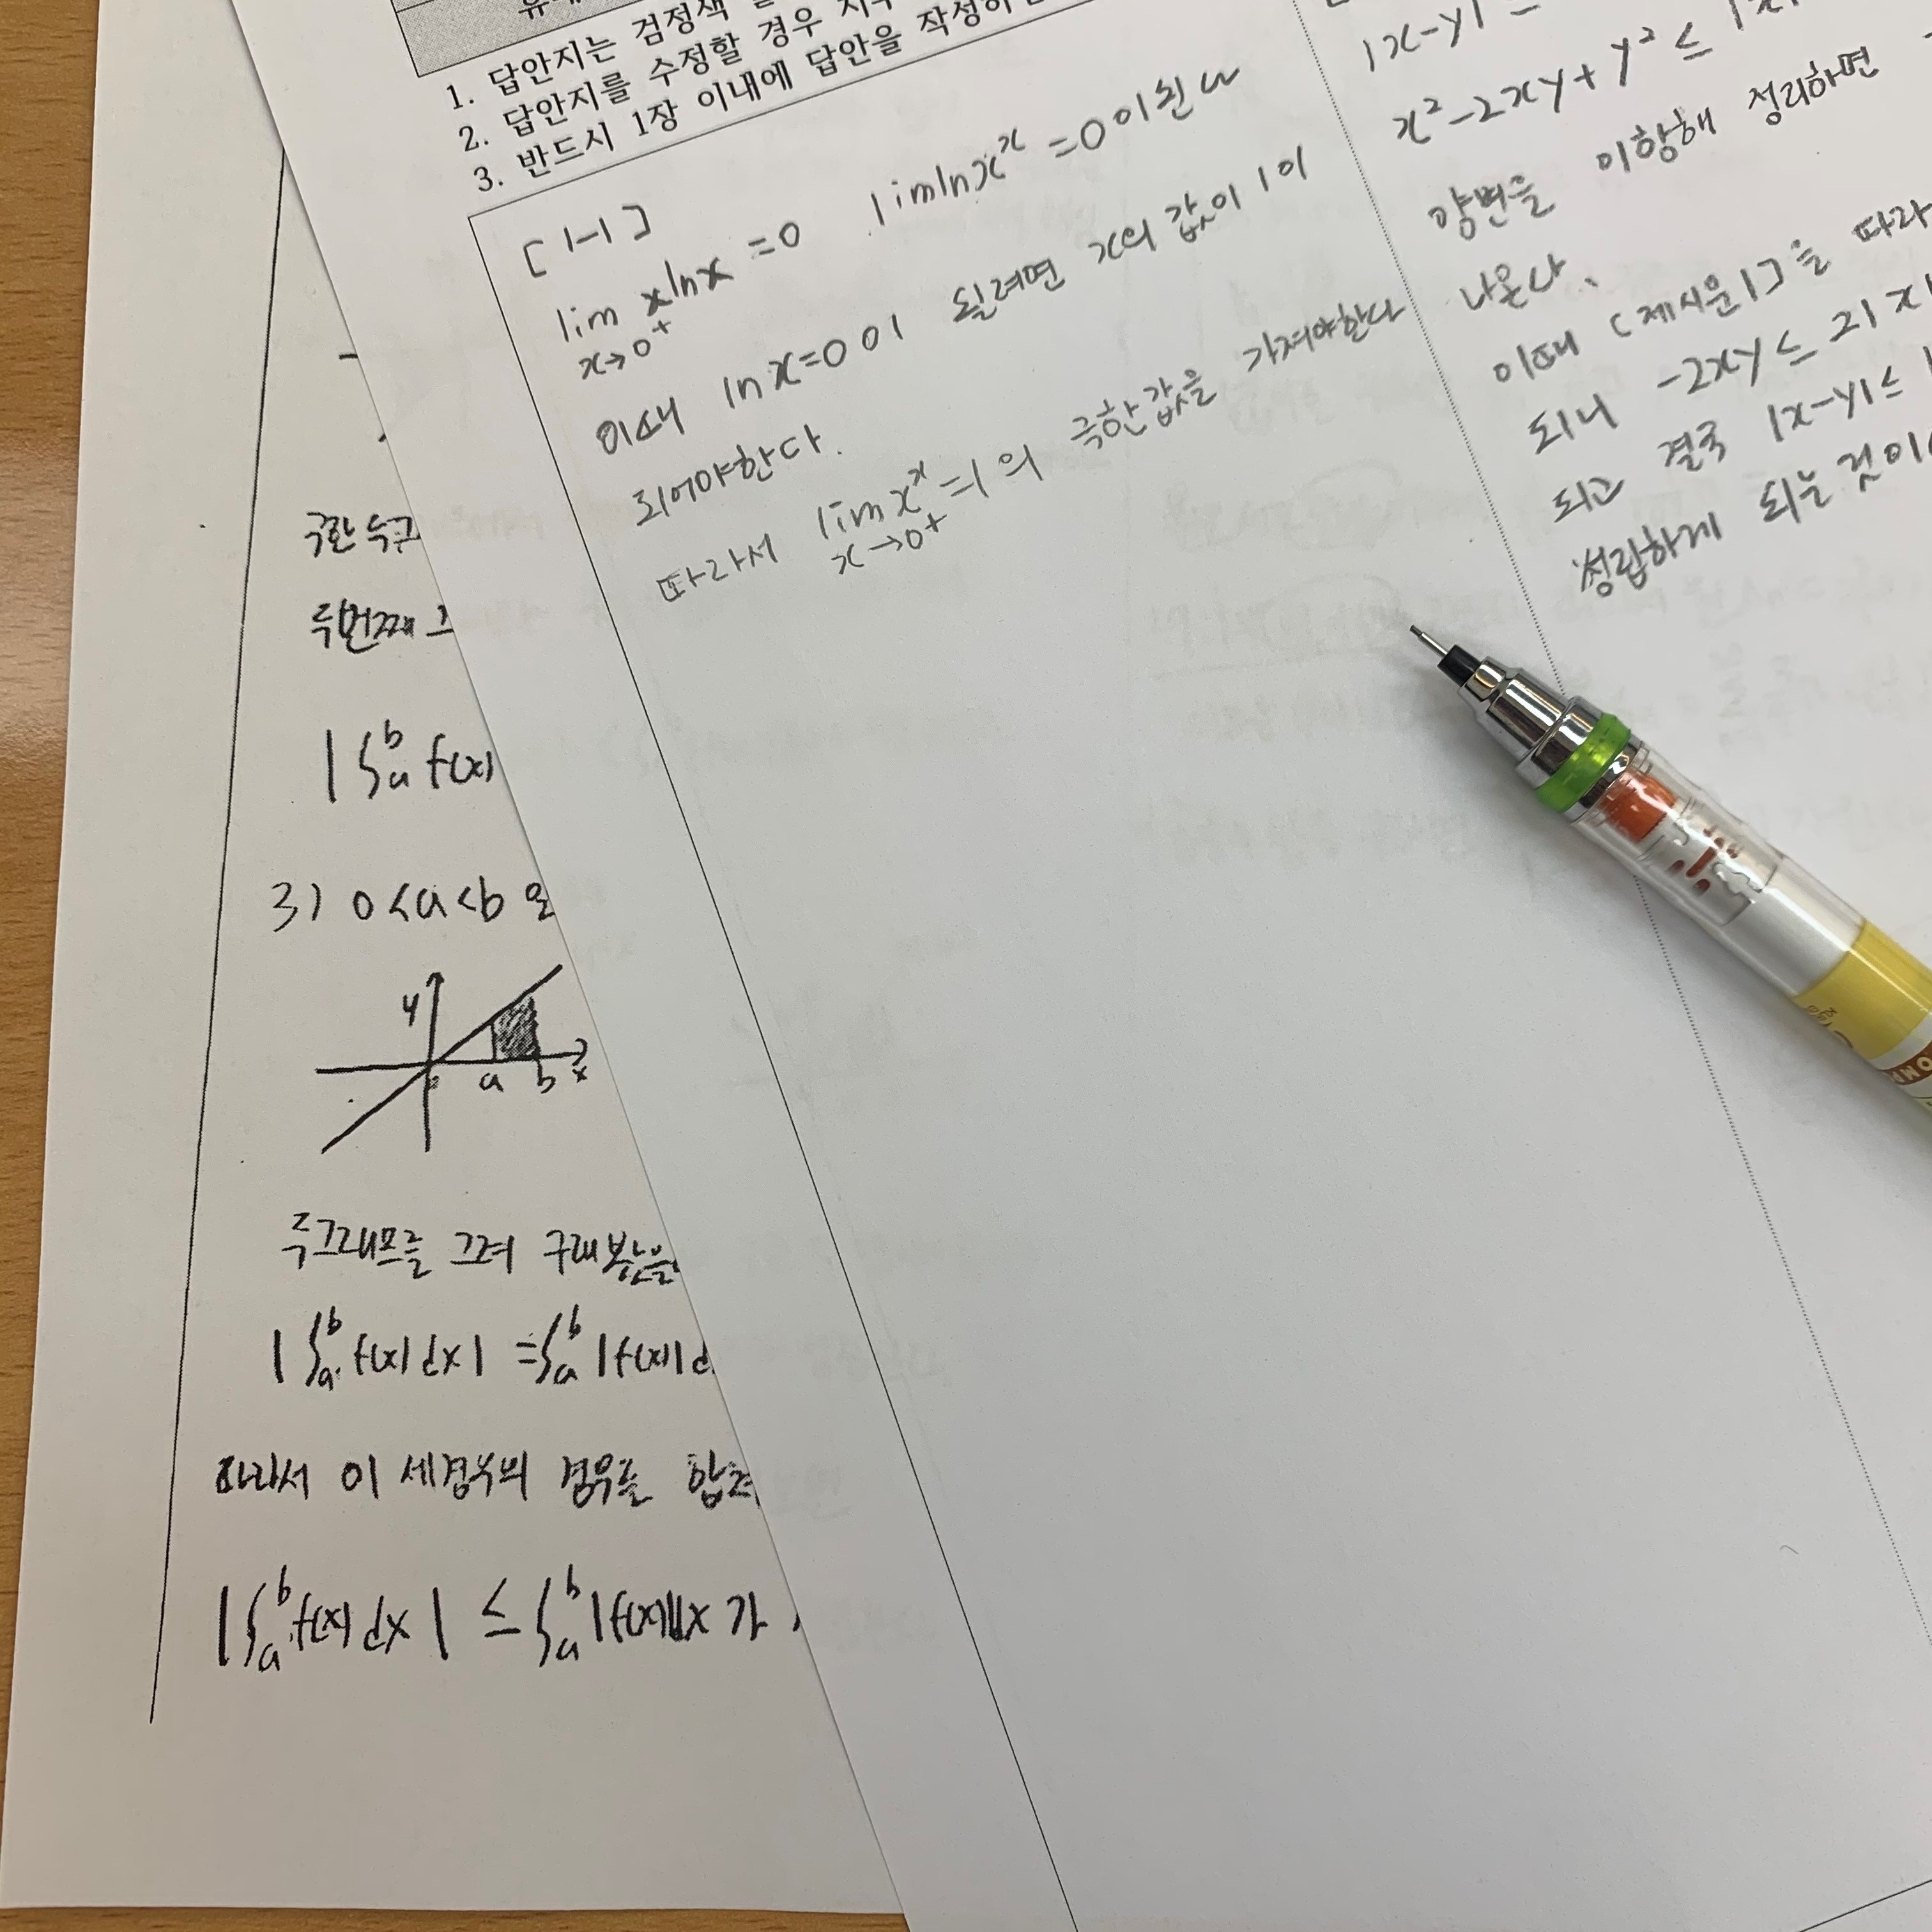 1. 답안지는 검정색
2. 답안지를 수정할 경우
3. 반드시 1장 이내에 답안을
[1-1]
lim x→0⁺ xlnx = 0 limlnx^x = 0 이된다
이때 lnx=0 이 될려면 x의 값이 1이
되어야한다.
따라서 lim x→0⁺ x^x = 1 의 극한값을 가져야한다
|x-y| ≤
x²-2xy+y² ≤
양변을 이항해 정리하면
나온다.
이때 [제시문1]을 따라
되니 -2xy ≤ 2|x|
되고 결국 |x-y| ≤
성립하게 되는 것이
두번째 그
|∫ₐᵇ f(x)
3) 0<a<b
y
a b x
두그래프를 그려
|∫ₐᵇ f(x) dx| = ∫ₐᵇ |f(x)| d
따라서 이 세경우의 경우를 합쳐
|∫ₐᵇ f(x) dx| ≤ ∫ₐᵇ |f(x)|dx 가